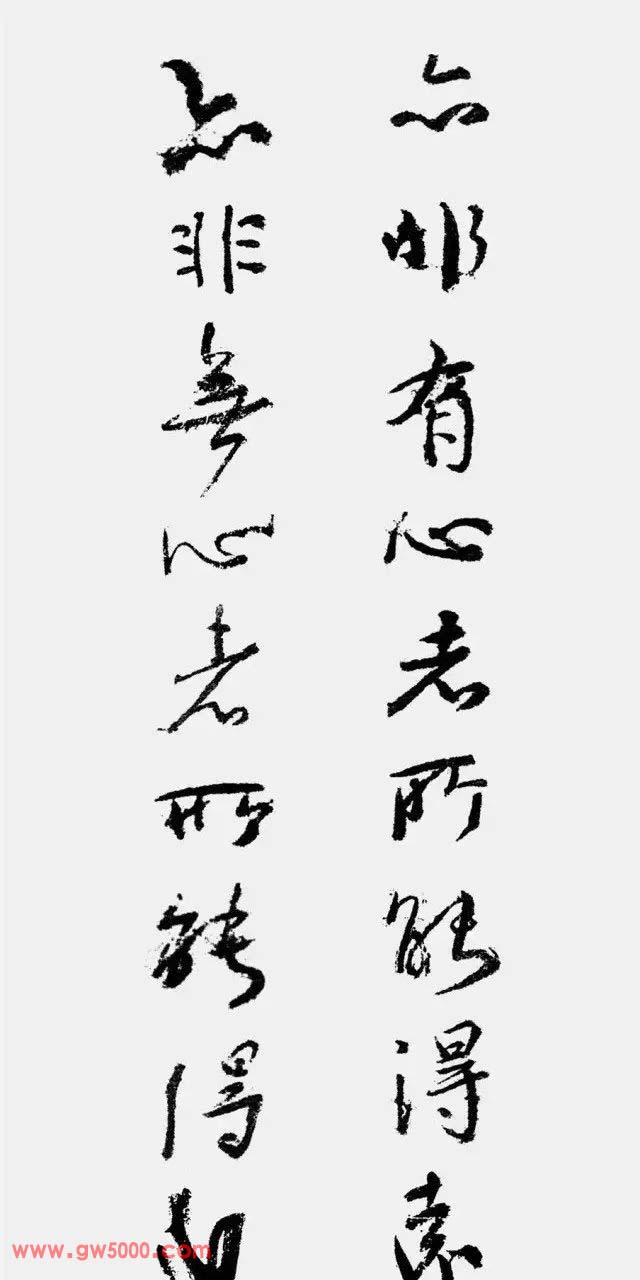 亦非有心者所能得遠
亦非無心者所能得近
www.gw5000.com